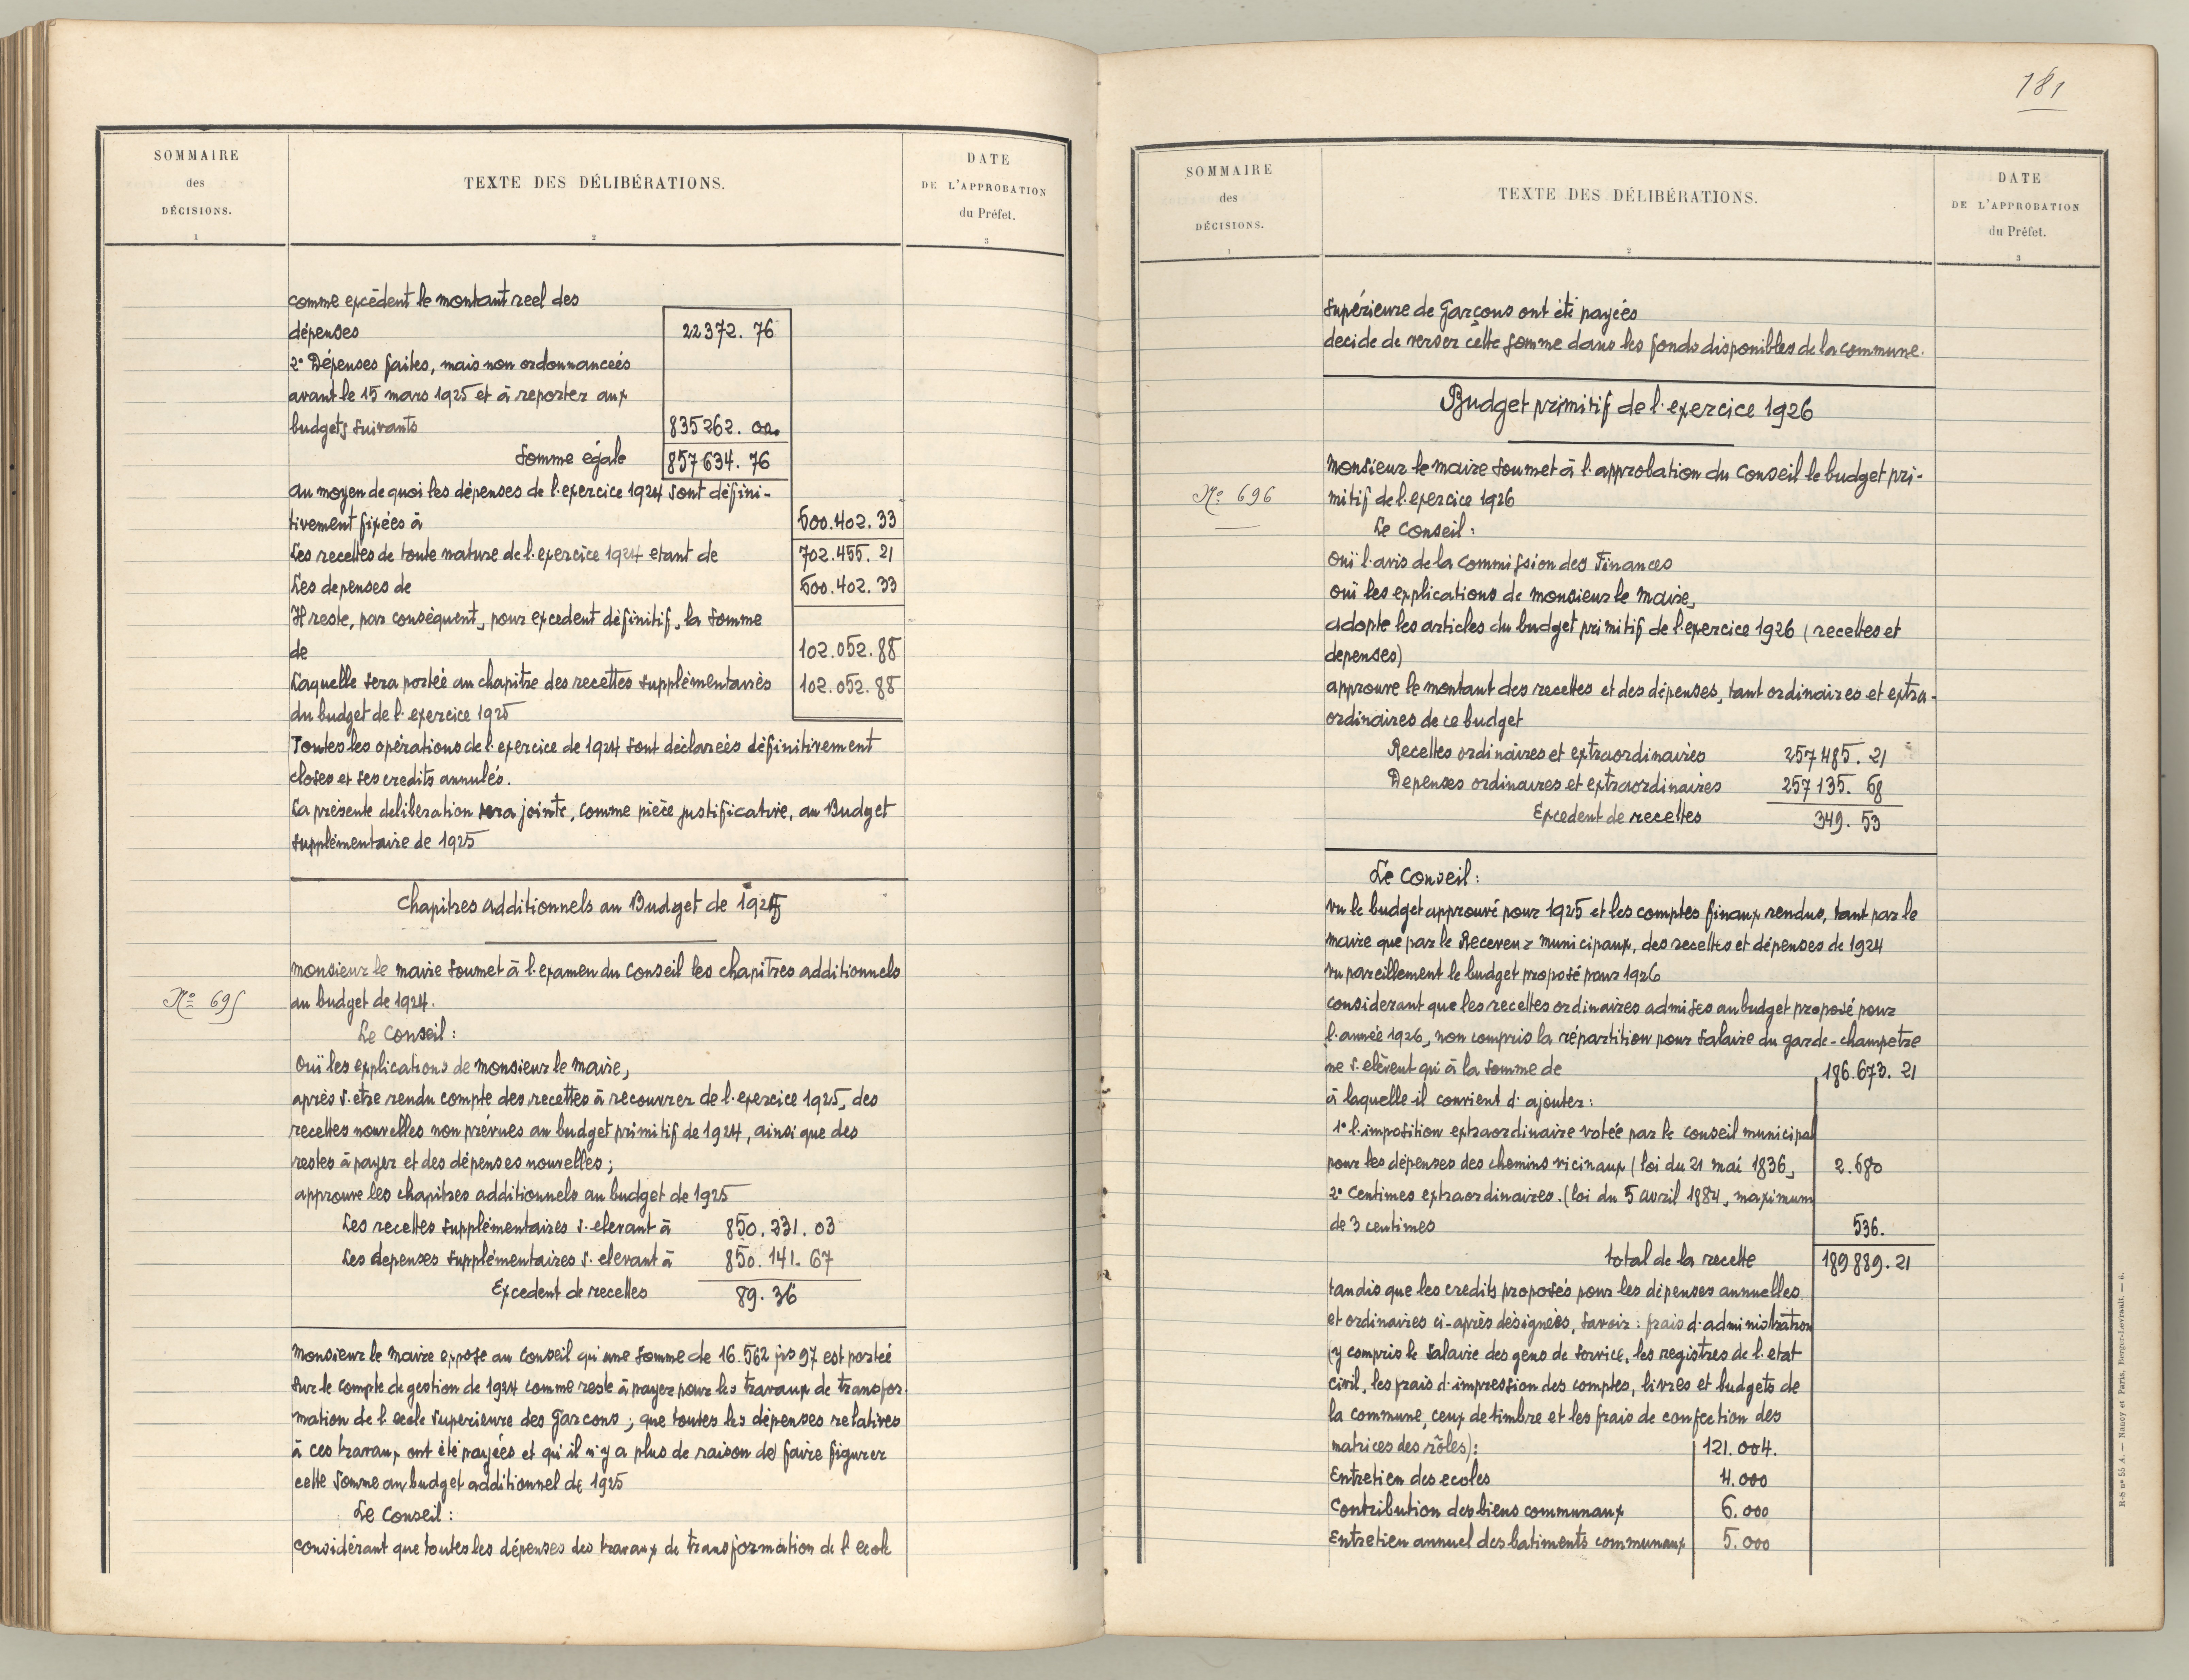 SOMMAIRE
des
DÉCISIONS.
1
TEXTE DES DÉLIBÉRATIONS.
2
DATE
DE L'APPROBATION
du Préfet.
3
comme excédent le montant reel des
dépenses 22372. 76
2° Dépenses faites, mais non ordonnanceés
avant le 15 mars 1925 et à reporter aux
budgets suivants 835262. 00.
Somme égale 857634. 76
au moyen de quoi les dépenses de l'exercice 1924 sont défini-
tivement fixées à 600.402. 33
Les recettes de toute nature de l'exercice 1924 etant de 702.455. 21
Les depenses de 600.402. 33
Il reste, par conséquent, pour excedent définitif, la somme
de 102.052. 88
Laquelle sera porteé au chapitre des recettes supplémentairès 102.052. 88
du budget de l'exercice 1925
Toutes les opérations de l'exercice de 1924 sont déclareés définitivement
closes et ses credits annulés.
La présente deliberation sera jointe, comme pièce justificative, au Budget
supplémentaire de 1925
Chapitres additionnels au Budget de 1925
Nº 695
monsieur le maire soumet à l'examen du Conseil les chapitres additionnels
au budget de 1924.
Le Conseil :
Ouï les explications de monsieur le maire,
après s'être rendu compte des recettes à recouvrer de l'exercice 1925, des
recettes nouvelles non prévues au budget primitif de 1924, ainsi que des
restes à payer et des dépenses nouvelles ;
approuve les chapitres additionnels au budget de 1925
Les recettes supplémentaires s'elevant à 850. 231. 03
Les depenses supplémentaires s'elevant à 850. 141. 67
Excedent de recettes 89. 36
monsieur le maire expose au Conseil qu'une somme de 16.562 frs 97 est porteé
sur le compte de gestion de 1924 comme reste à payer pour les travaux de transfor-
mation de l'ecole superieure des Garcons ; que toutes les dépenses relatives
à ces travaux ont été payées et qu'il n'y a plus de raison de faire figurer
cette somme au budget additionnel de 1925
Le Conseil :
considérant que toutes les dépenses des travaux de transformation de l'ecole
181
SOMMAIRE
des
DÉCISIONS.
1
TEXTE DES DÉLIBÉRATIONS.
2
DATE
DE L'APPROBATION
du Préfet.
3
supérieure de Garçons ont été payeés
decide de verser cette somme dans les fonds disponibles de la commune.
Budget primitif de l'exercice 1926
Nº 696
monsieur le maire soumet à l'approbation du Conseil le budget pri-
mitif de l'exercice 1926
Le Conseil :
Ouï l'avis de la Commission des Finances
ouï les explications de monsieur le maire,
adopte les articles du budget primitif de l'exercice 1926 (recettes et
depenses)
approuve le montant des recettes et des dépenses, tant ordinaires et extra-
ordinaires de ce budget
Recettes ordinaires et extraordinaires 257485. 21
Depenses ordinaires et extraordinaires 257135. 68
Excedent de recettes 349. 53
Le Conseil :
vu le budget approuvé pour 1925 et les comptes finaux rendus, tant par le
maire que par le Receveur municipaux, des recettes et dépenses de 1924
vu pareillement le budget proposé pour 1926
considerant que les recettes ordinaires admises au budget proposé pour
l'année 1926, non compris la répartition pour salaire du garde-champetre
ne s'elèvent qu'à la somme de 186.673. 21
à laquelle il convient d'ajouter :
1° l'imposition extraordinaire votée par le conseil municipal
pour les dépenses des chemins vicinaux (loi du 21 mai 1836, 2.680
2° Centimes extraordinaires. (loi du 5 avril 1884, maximum
de 3 centimes 536.
total de la recette 189889. 21
tandis que les credits proposés pour les dépenses annuelles
et ordinaires ci-après désigneés, savoir : frais d'administration
(y compris le salaire des gens de service, les registres de l'etat
civil, les frais d'impression des comptes, livres et budgets de
la commune, ceux de timbre et les frais de confection des
matrices des rôles) : 121.004.
Entretien des ecoles 4.000
Contribution des biens communaux 6.000
Entretien annuel des batiments communaux 5.000
R-S nº 55 A. — Nancy et Paris, Berger-Levrault. — 6.